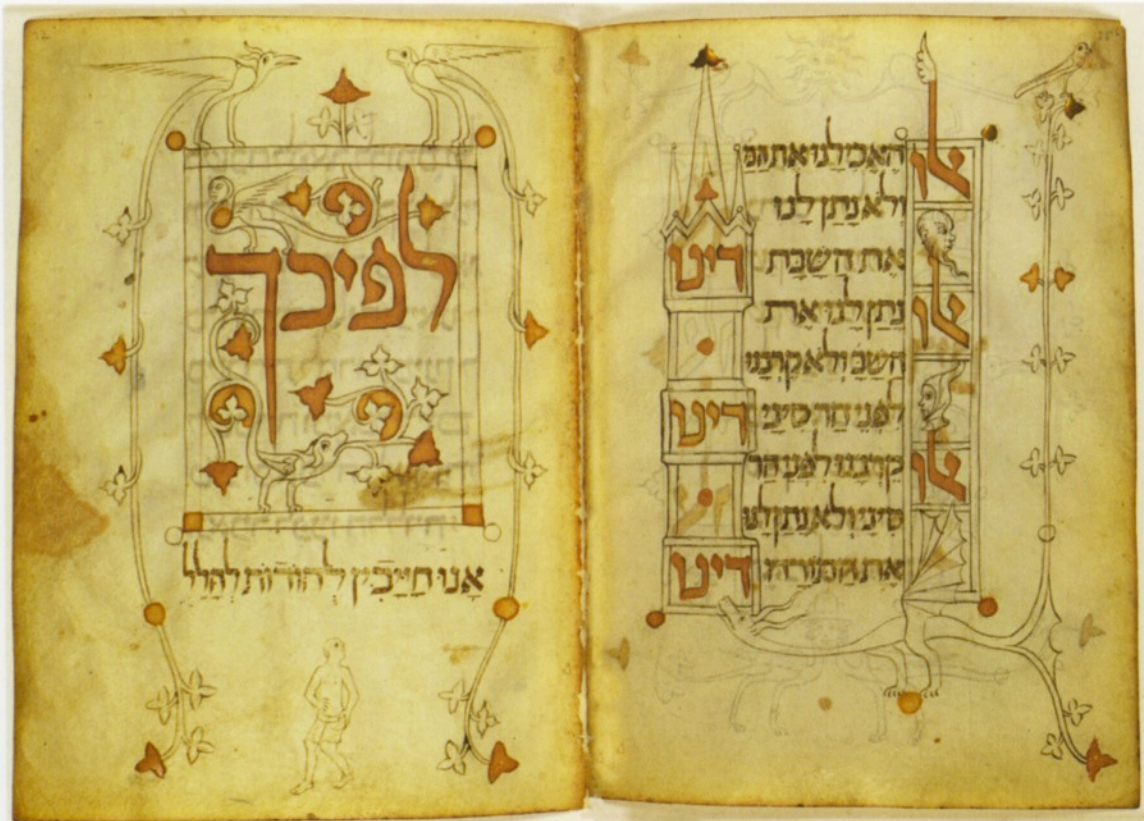 אלו האכילנו את המ
ולא נתן לנו
את השבת דינו
אלו נתן לנו את
השב ולא קרבנו
לפני הר סיני דינו
אלו קרבנו לפני הר
סיני ולא נתן לנו
את התורה דינו
לפיכך
אנו חייבין להודות להלל